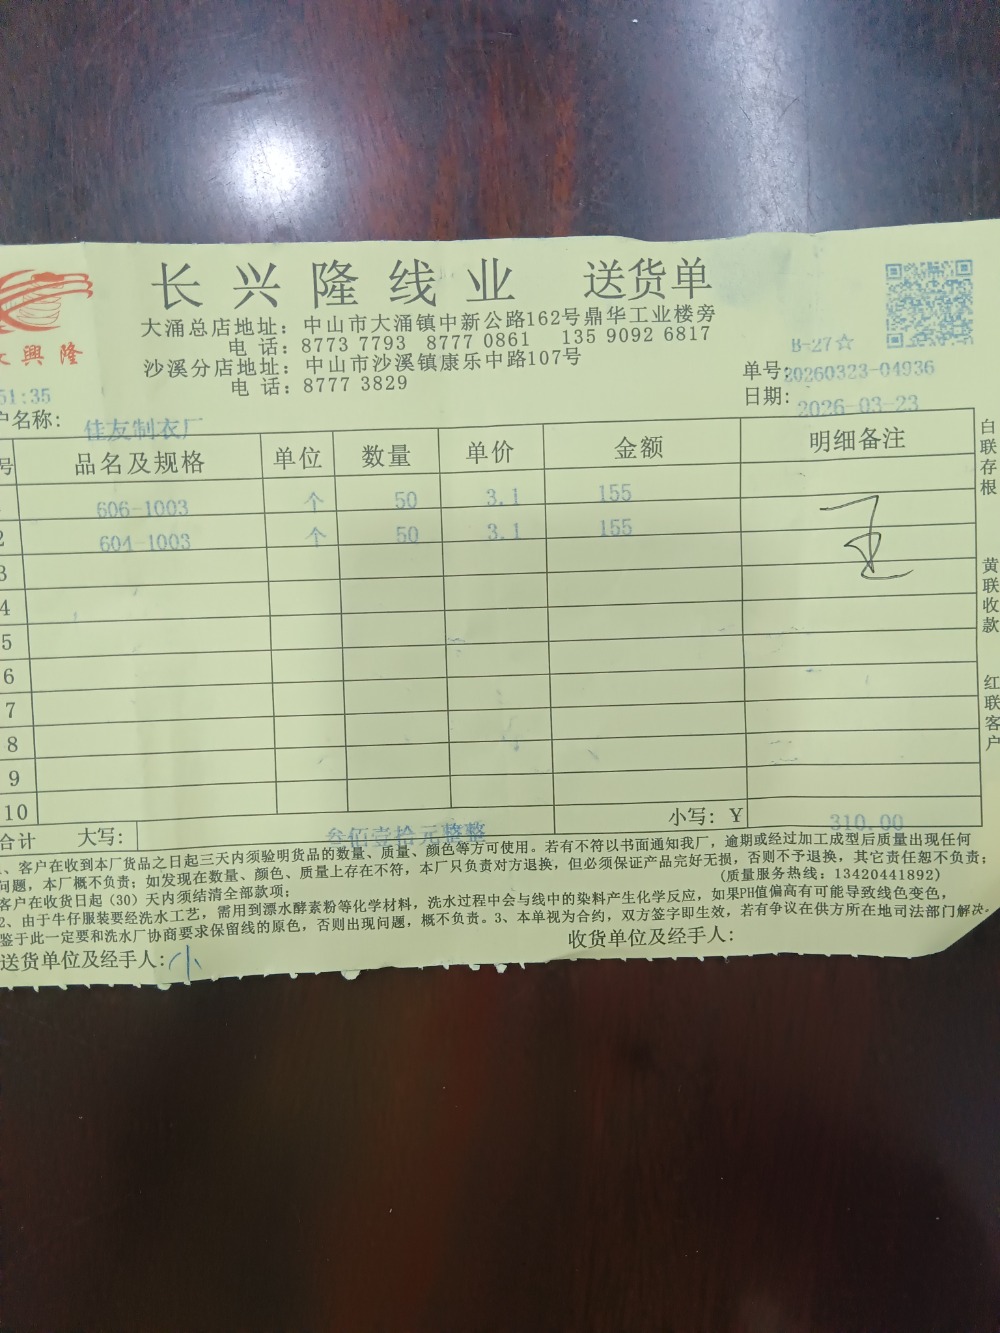 长兴隆线业 送货单
大涌总店地址：中山市大涌镇中新公路162号鼎华工业楼旁
电 话：8773 7793 8777 0861 135 9092 6817
沙溪分店地址：中山市沙溪镇康乐中路107号
电 话：8777 3829
興隆
B-27☆
单号：20260323-04936
日期：2026-03-23
51:35
户名称：佳友制衣厂
号 品名及规格 单位 数量 单价 金额 明细备注
606-1003 个 50 3.1 155
2 604-1003 个 50 3.1 155
3
4
5
6
7
8
9
10
合计 大写：叁佰壹拾元整整 小写：￥ 310.00
、客户在收到本厂货品之日起三天内须验明货品的数量、质量、颜色等方可使用。若有不符以书面通知我厂，逾期或经过加工成型后质量出现任何
问题，本厂概不负责；如发现在数量、颜色、质量上存在不符，本厂只负责对方退换，但必须保证产品完好无损，否则不予退换，其它责任恕不负责；
客户在收货日起（30）天内须结清全部款项； （质量服务热线：13420441892）
2、由于牛仔服装要经洗水工艺，需用到漂水酵素粉等化学材料，洗水过程中会与线中的染料产生化学反应，如果PH值偏高有可能导致线色变色，
鉴于此一定要和洗水厂协商要求保留线的原色，否则出现问题，概不负责。3、本单视为合约，双方签字即生效，若有争议在供方所在地司法部门解决。
送货单位及经手人：小 收货单位及经手人：
白联存根
黄联收款
红联客户